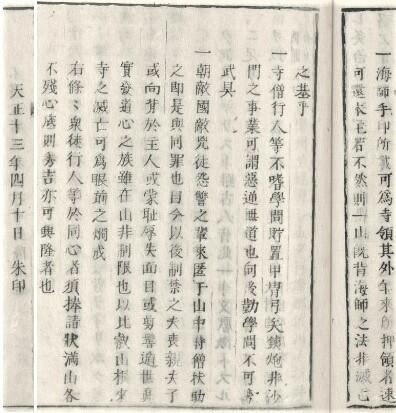 一海師手印所載可爲寺領其外年來所押領者速
可還本主若不然則一山既背海師之法非滅亡
之基乎
一寺僧行人等不嗜學問貯置甲冑弓矢鉄炮非沙
門之事業可謂惡逆無道也向後勸學問不可專
武具
一朝敵國敵兇徒怨讐之輩來匿于山中時僧扶助
之即是與同罪也自今以後制禁之夫喪親失子
或向背於主人或蒙恥辱失面目或剪髻遁世真
實發道心之族雖在山非制限也以比叡山根來
寺之滅亡可爲眼前之炯戒
右條々衆徒行人等於同心者須捧請狀滿山各
不殘心底則秀吉亦可興隆者也
天正十三年四月十日朱印